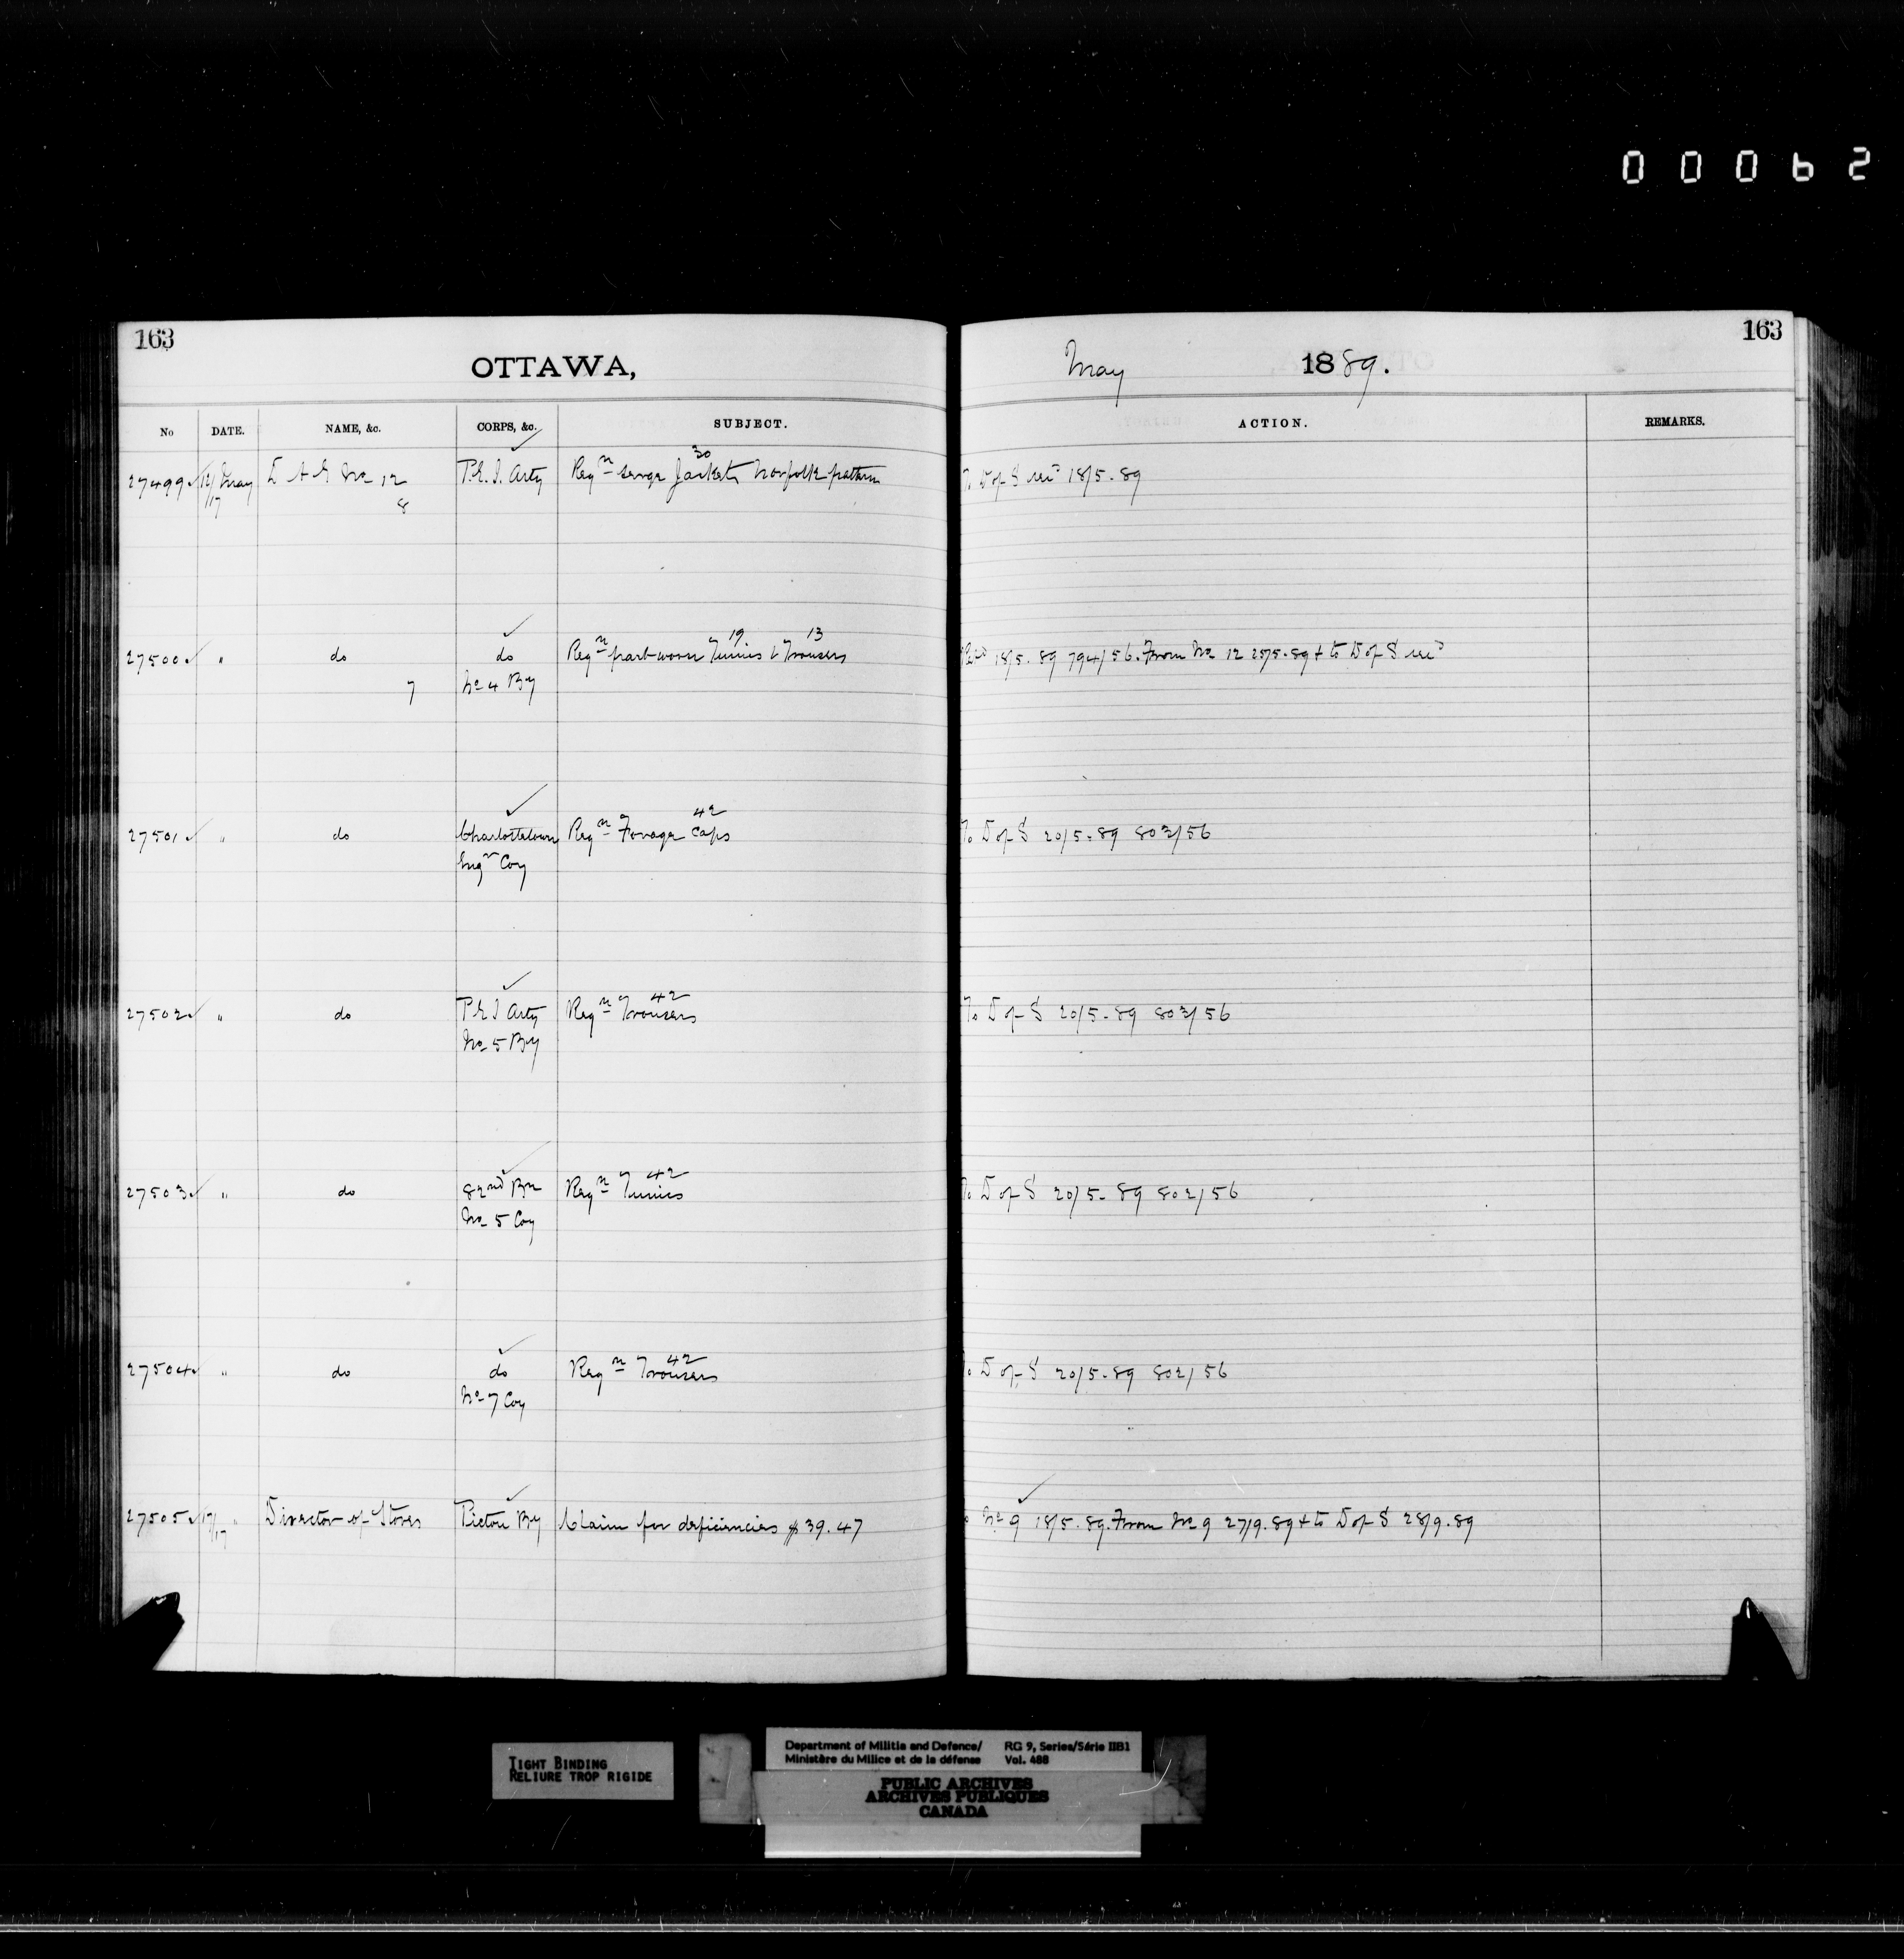 00062
163
OTTAWA,
May 1889.
163
No DATE. NAME, &c. CORPS, &c. SUBJECT. ACTION. REMARKS.
27499 12/17 May D A G No 12 P.E.I. Arty Reqn serge Jackets 30 Norfolk pattern To D of S 18/5.89
8
27500 " do do Reqn part-worn Tunics 19 & Trousers 13 18/5.89 794/56. From No 12 25/5.89 & to D of S
7 No 4 By
27501 " do Charlottetown Reqn Forage Caps 42 To D of S 20/5.89 803/56
Engr Coy
27502 " do P E I Arty Reqn Trousers 42 To D of S 20/5.89 803/56
No 5 By
27503 " do 82nd Bn Reqn Tunics 42 To D of S 20/5.89 802/56
No 5 Coy
27504 " do do Reqn Trousers 42 To D of S 20/5.89 802/56
No 7 Coy
27505 17/17 " Director of Stores Pictou By Claim for deficiencies $39.47 No 9 18/5.89. From No 9 27/9.89 & to D of S 28/9.89
TIGHT BINDING
RELIURE TROP RIGIDE
Department of Militia and Defence/ RG 9, Series/Série IIB1
Ministère du Milice et de la défense Vol. 488
PUBLIC ARCHIVES
ARCHIVES PUBLIQUES
CANADA